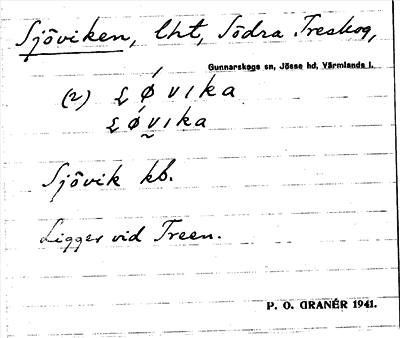 Sjöviken, lht, Södra Treskog,
Gunnarskogs sn, Jösse hd, Värmlands l.
(2) ʂǿvika
ʂǿv̰ika
Sjövik kb.
Ligger vid Treen.
P. O. GRANÉR 1941.